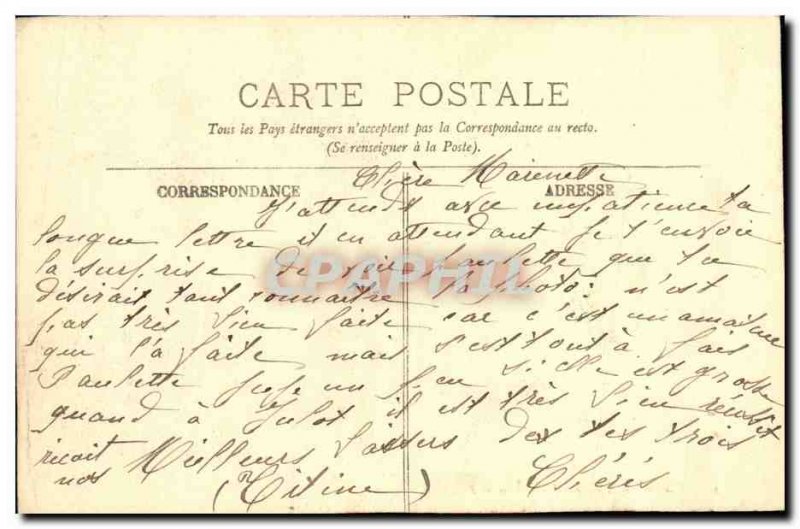 CARTE POSTALE
Tous les Pays étrangers n'acceptent pas la Correspondance au recto.
(Se renseigner à la Poste).
CORRESPONDANCE
ADRESSE
Chère Marinette
J'attends avec impatience ta
longue lettre et en attendant je t'envoie
la surprise de voir Paulette que tu
désirait tant connaitre la photo n'est
pas très bien faite car c'est un amateur
qui l'a faite mais s'est tout à fais
Paulette juge un peu si elle est grosse
quand à Julot il est très bien réussit
Meilleurs baisers des tes trois
nos (Titine) Chéris
CPAPHIL